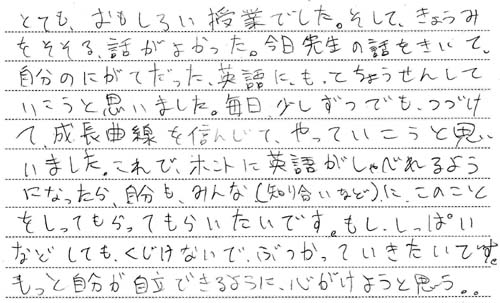 とても、おもしろい授業でした。そして、きょうみ
をそそる、話がよかった。今日先生の話をきいて、
自分のにがてだった、英語に、もっとちょうせんして
いこうと思いました。毎日、少しずつでも、つづけ
て、成長曲線を信んじて、やっていこうと思い
いました。これで、ホントに英語がしゃべれるよう
になったら、自分も、みんな(知り合いなど)に、このこと
をしってもらってもらいたいです。もし、しっぱい
などしても、くじけないで、ぶつかっていきたいです。
もっと自分が自立できるように、心がけようと思う。。